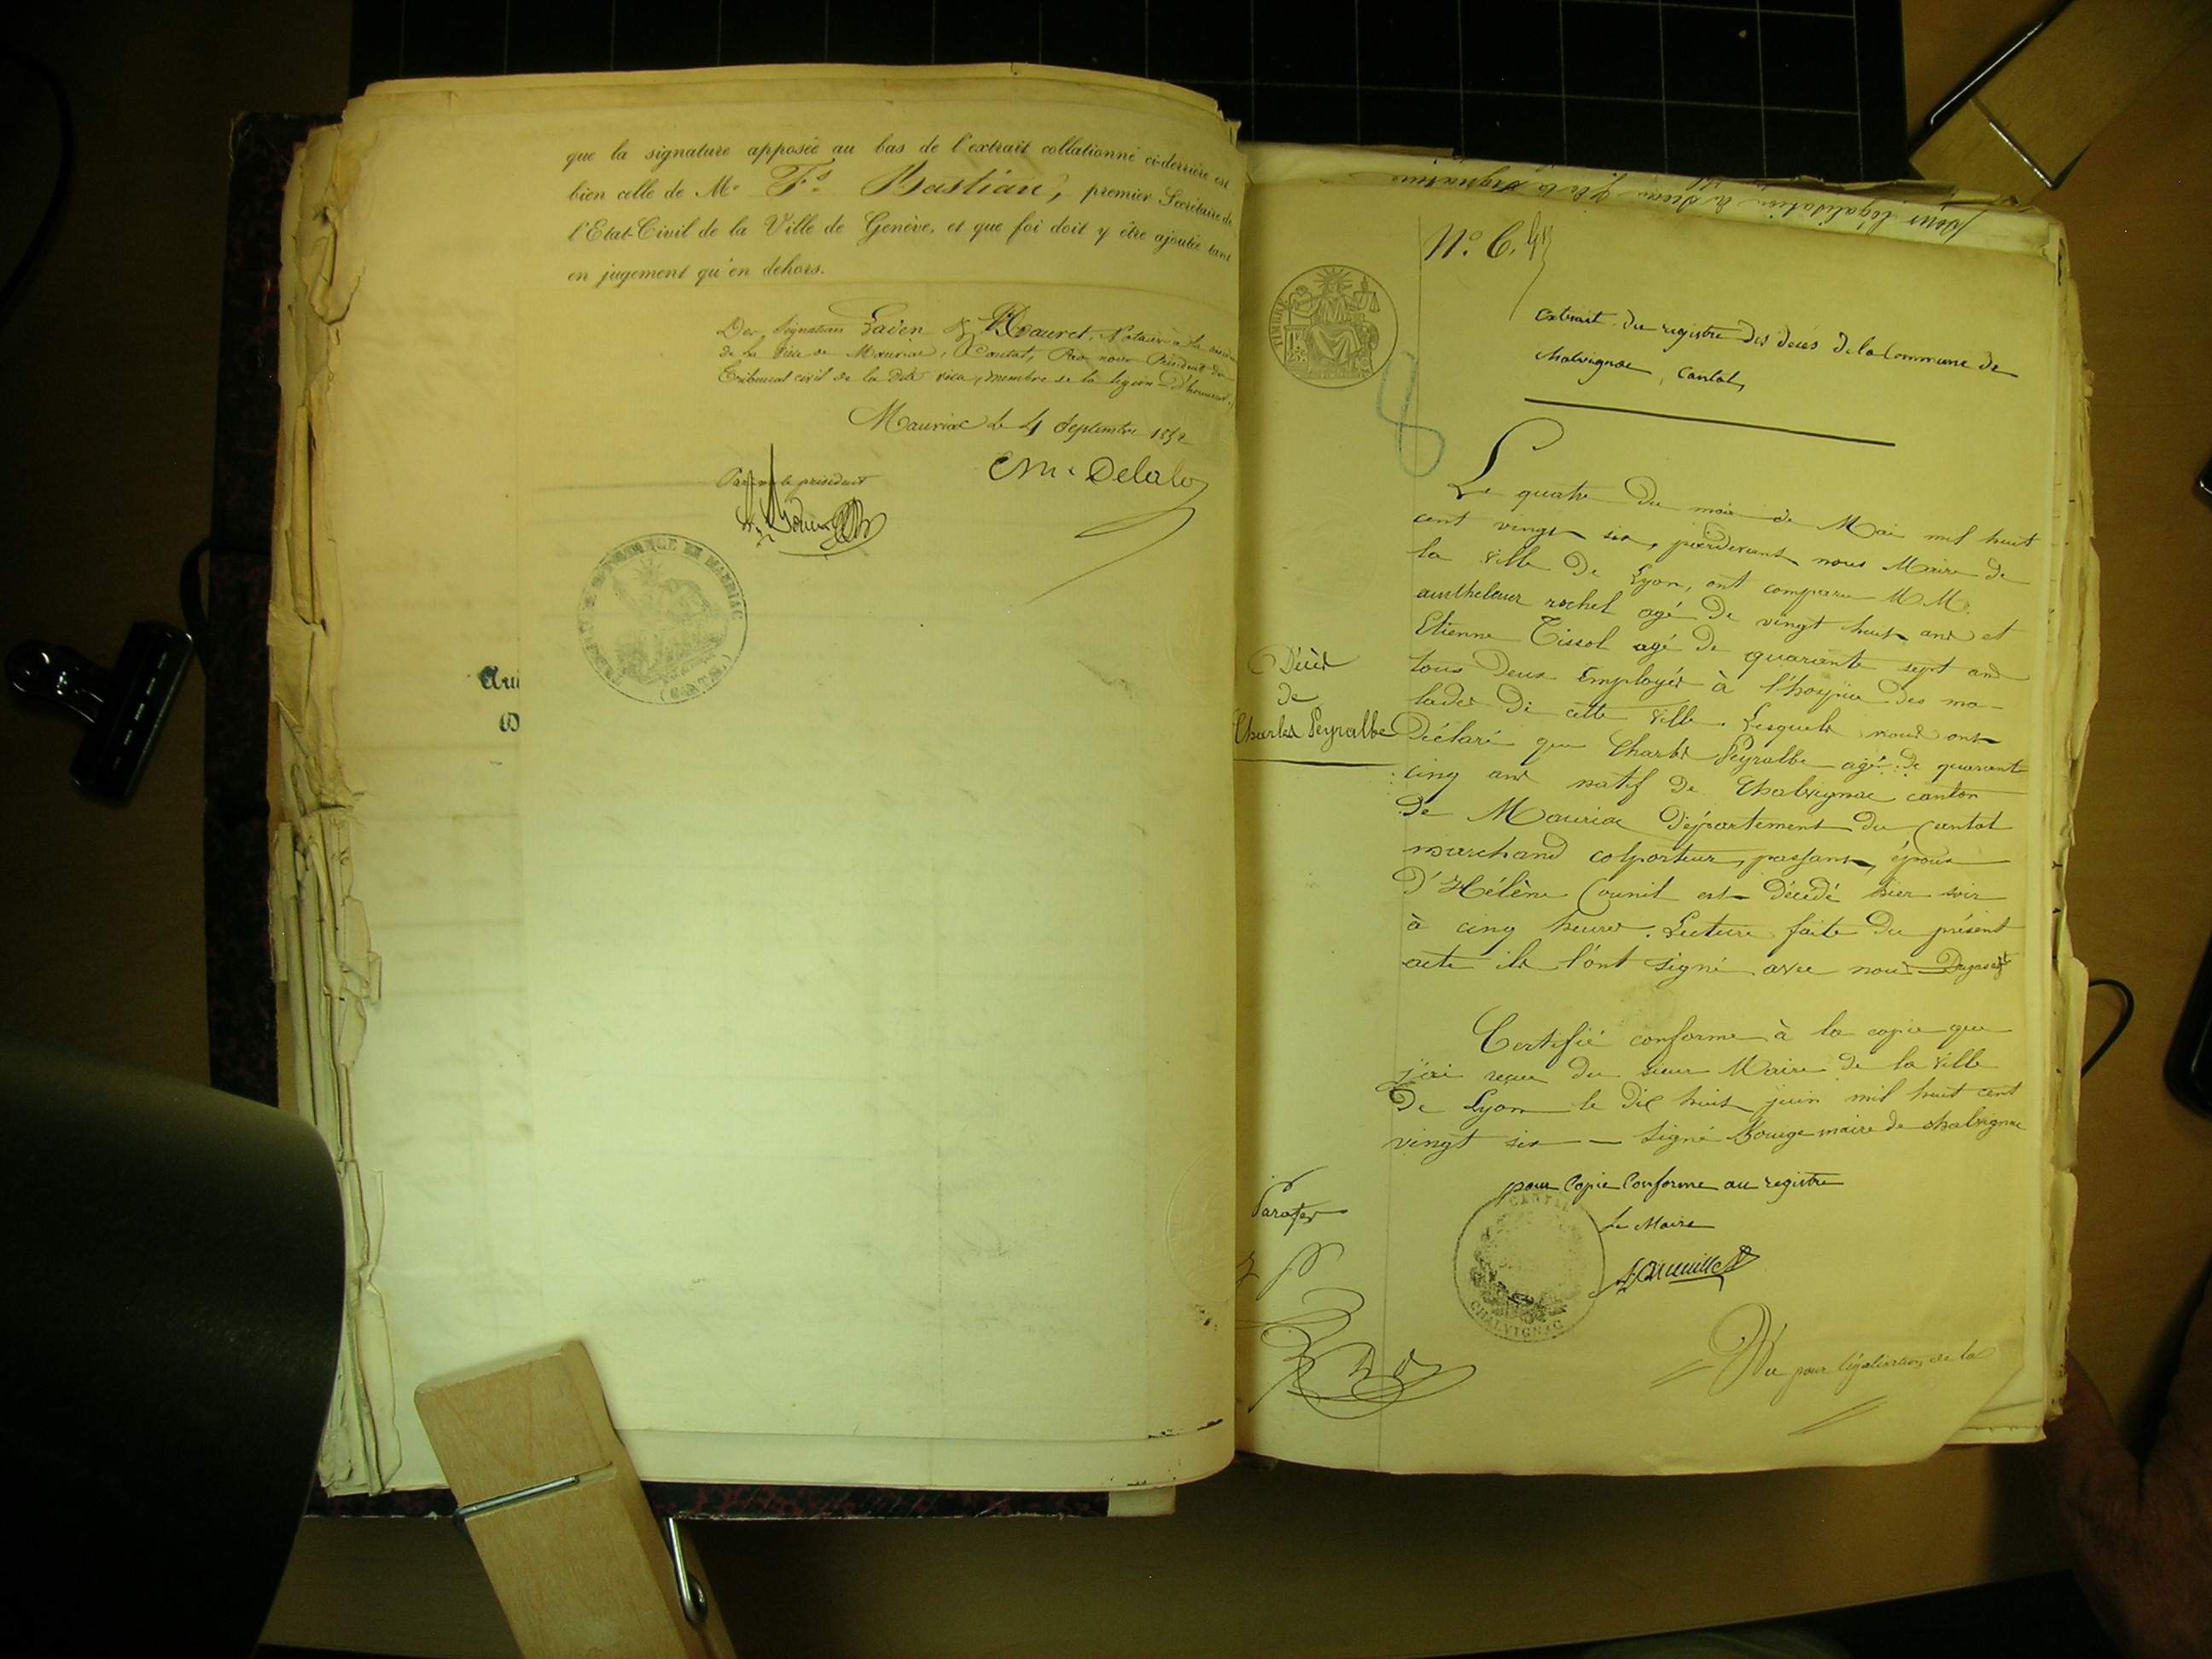 que la signature apposée au bas de l'extrait collationné ci-derrière est
bien celle de Mr Fs Bastian, premier Secrétaire de
l'Etat-Civil de la Ville de Genève, et que foi doit y être ajoutée tant
en jugement qu'en dehors.
Des signatures &
de la ville de Mauriac, Cantal, Par nous Président du
Tribunal civil de la dite ville, membre de la légion d'honneur.
Mauriac le 4 Septembre
le président
Delalo
(CANTAL)
pour légalisation de la signature
No. 6.
TIMBRE
8
extrait du registre des décès de la Commune de
chalvignac, Cantal,
Le quatre du mois de Mai mil huit
cent vingt six, pardevant nous Maire de
la ville de Lyon, ont comparu M.M.
rochel agé de vingt huit ans et
Etienne Tissol agé de quarante sept ans
tous deux Employés à l'hospice des ma-
lades de cette ville. Lesquels nous ont
Décès
de
Charles Peyralbe
Déclaré que Charles Peyralbe agé de quarante
cinq ans natif de Chalvignac canton
de Mauriac Département du Cantal
marchand colporteur, passant, époux
d'Hélène Counil est décédé hier soir
à cinq heures. Lecture faite du présent
acte ils l'ont signé avec nous
Certifié conforme à la copie que
j'ai reçue du sieur Maire de la ville
de Lyon le dix huit juin mil huit cent
vingt six — signé Bouige maire de chalvignac
pour Copie Conforme au registre
Le Maire
CANTAL
CHALVIGNAC
Vu pour légalisation de la